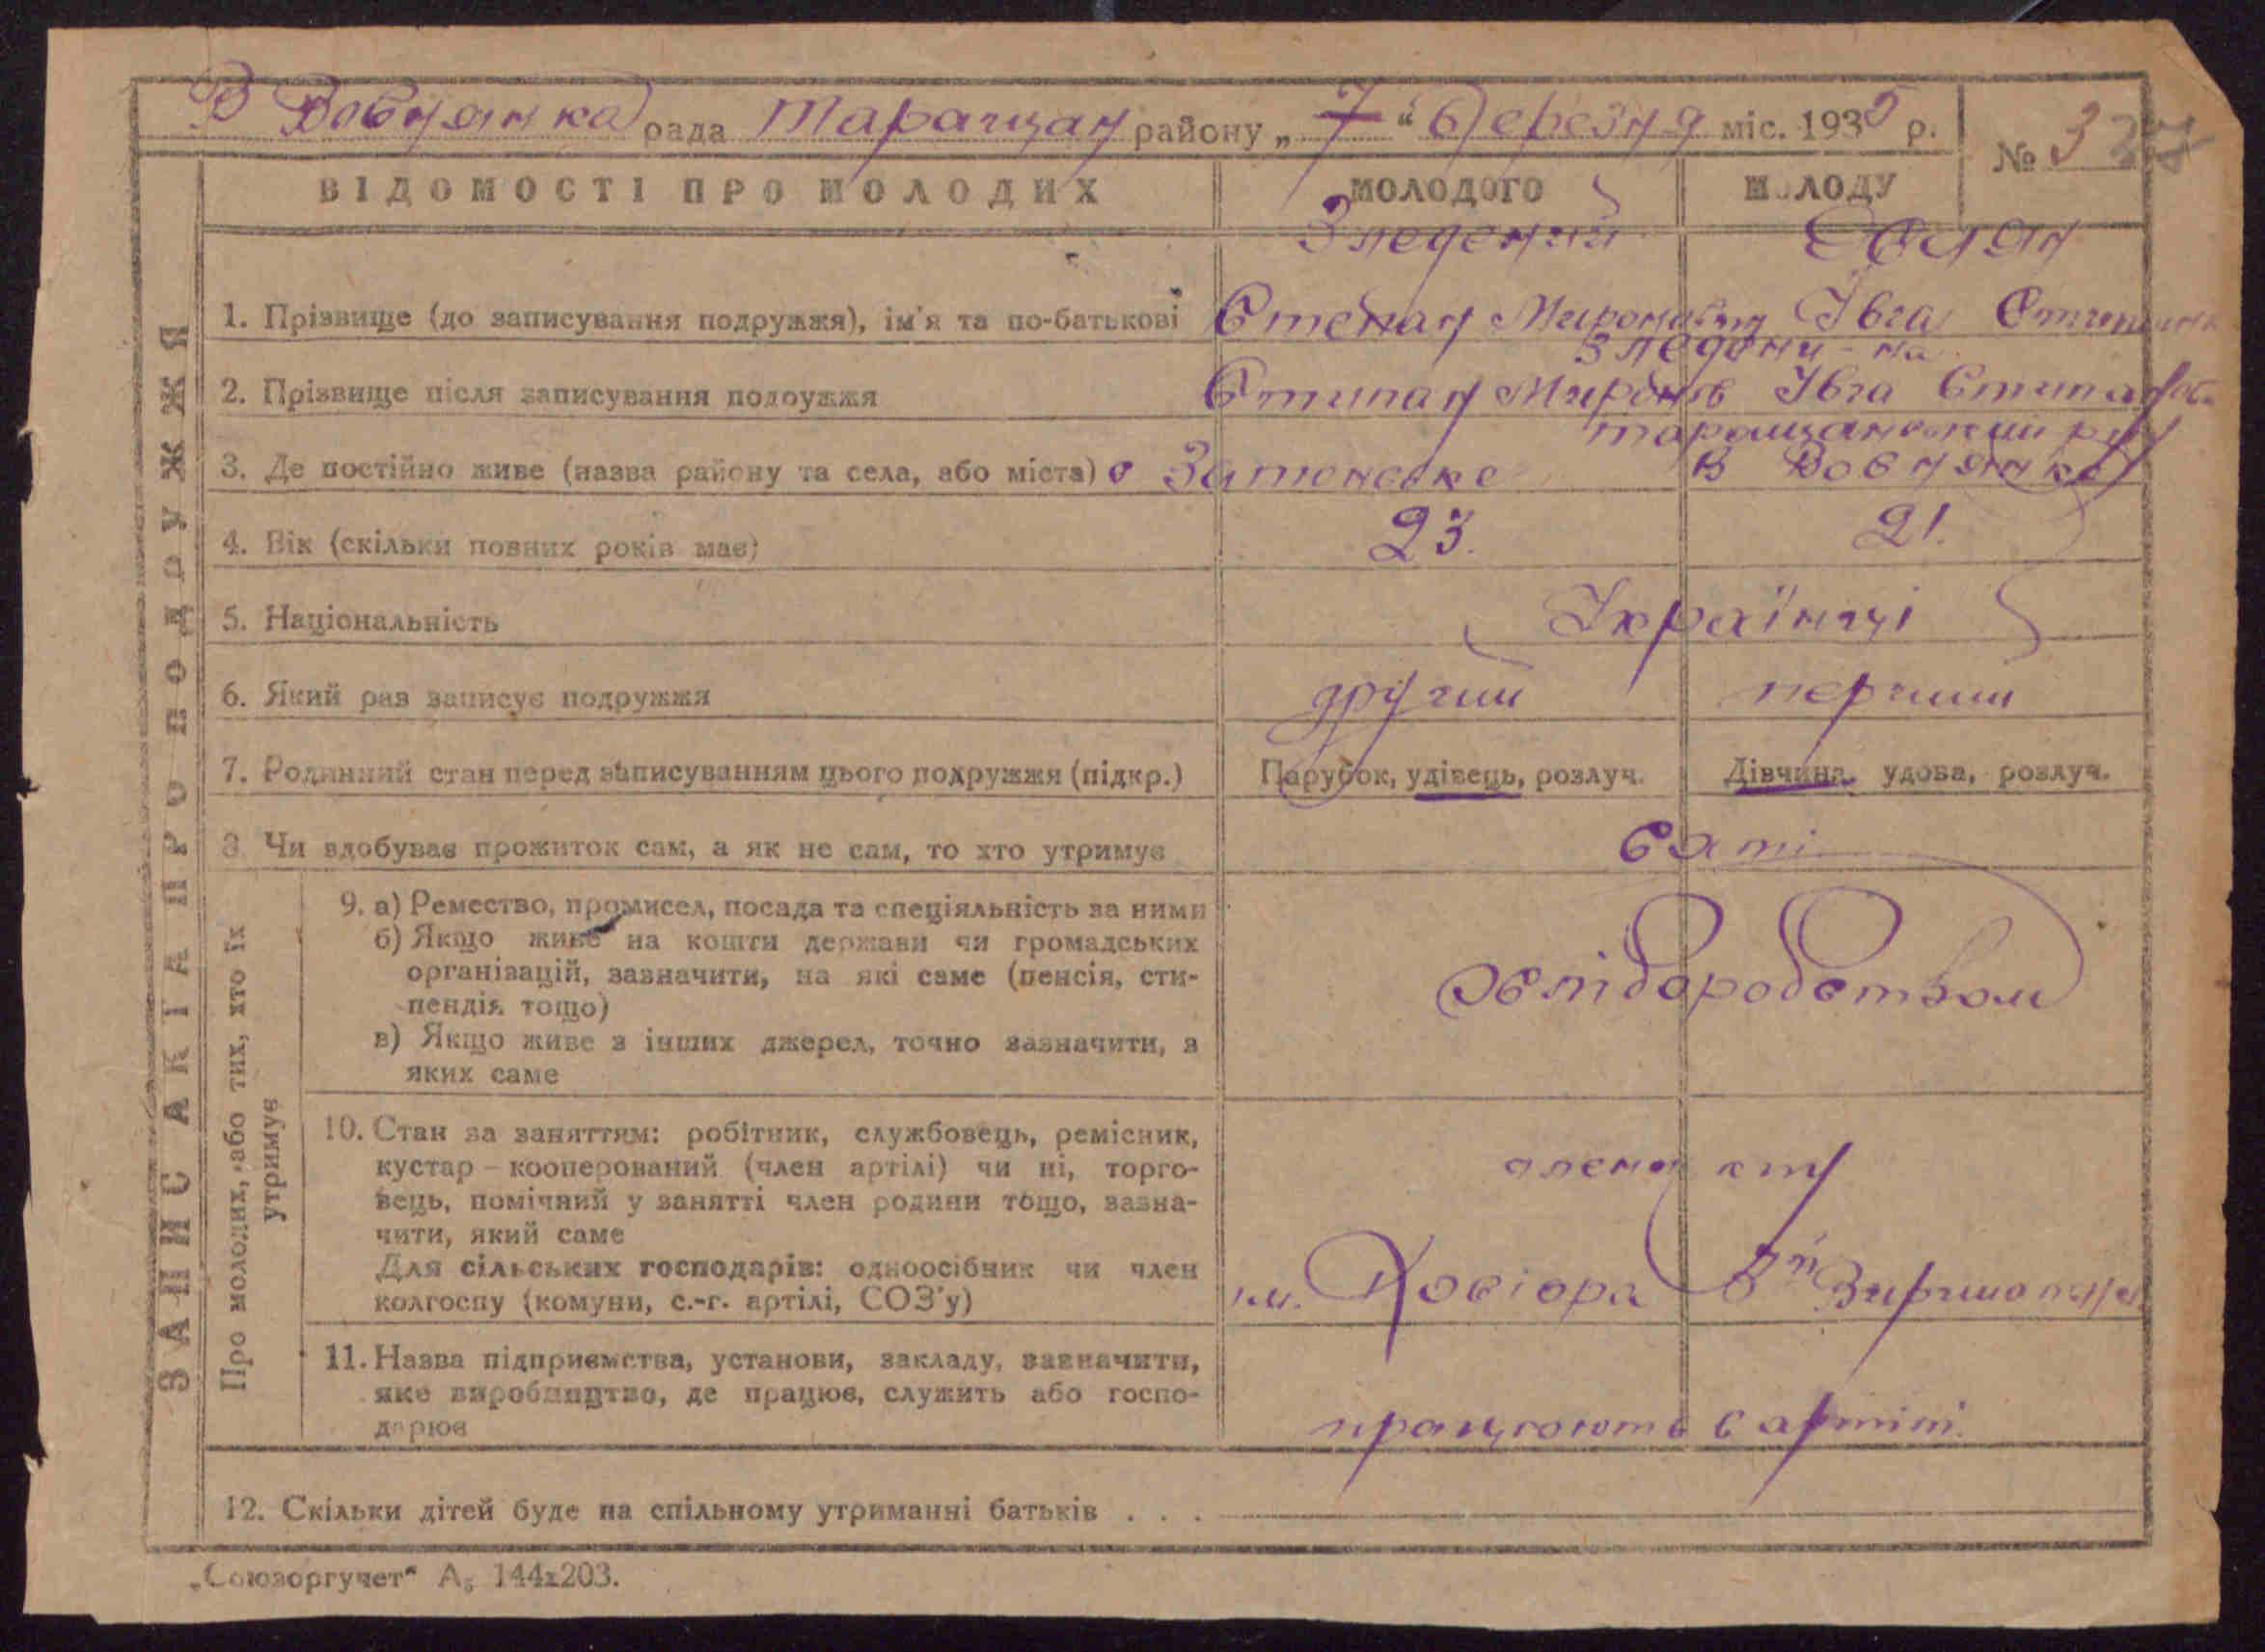 В Вовнянка рада Таращан району „ 7 “ Березня міс. 1935 р.
№ 3
ВІДОМОСТІ ПРО МОЛОДИХ
МОЛОДОГО
МОЛОДУ
ЗАПИС АКТА ПРО ПОДРУЖЖЯ
1. Прізвище (до записування подружжя), ім'я та по-батькові
Степан Миронович Івга
2. Прізвище після записування подружжя
Стипан Миронів Івга
Таращанський
3. Де постійно живе (назва району та села, або міста) с
В Вовнянка
4. Вік (скільки повних років має)
23.
21.
5. Національність
Українці
6. Який раз записує подружжя
другий
перчий
7. Родинний стан перед записуванням цього подружжя (підкр.)
Парубок, удівець, розлуч.
Дівчина, удова, розлуч.
8. Чи здобуває прожиток сам, а як не сам, то хто утримує
Самі
Про молодих, або тих, хто їх
утримує
9. а) Ремество, промисел, посада та спеціяльність за ними
б) Якщо живе на кошти держави чи громадських
організацій, зазначити, на які саме (пенсія, сти-
пендія тощо)
в) Якщо живе з інших джерел, точно зазначити, з
яких саме
хлібородством
10. Стан за заняттям: робітник, службовець, ремісник,
кустар – кооперований (член артілі) чи ні, торго-
вець, помічний у занятті член родини тощо, зазна-
чити, який саме
Для сільських господарів: одноосібник чи член
колгоспу (комуни, с.-г. артілі, СОЗ'у)
члени
ім. Косіора
11. Назва підприємства, установи, закладу, зазначити,
яке виробництво, де працює, служить або госпо-
дарює
працюють в артілі.
12. Скільки дітей буде на спільному утриманні батьків . . .
„Союзоргучет“ А₅ 144х203.